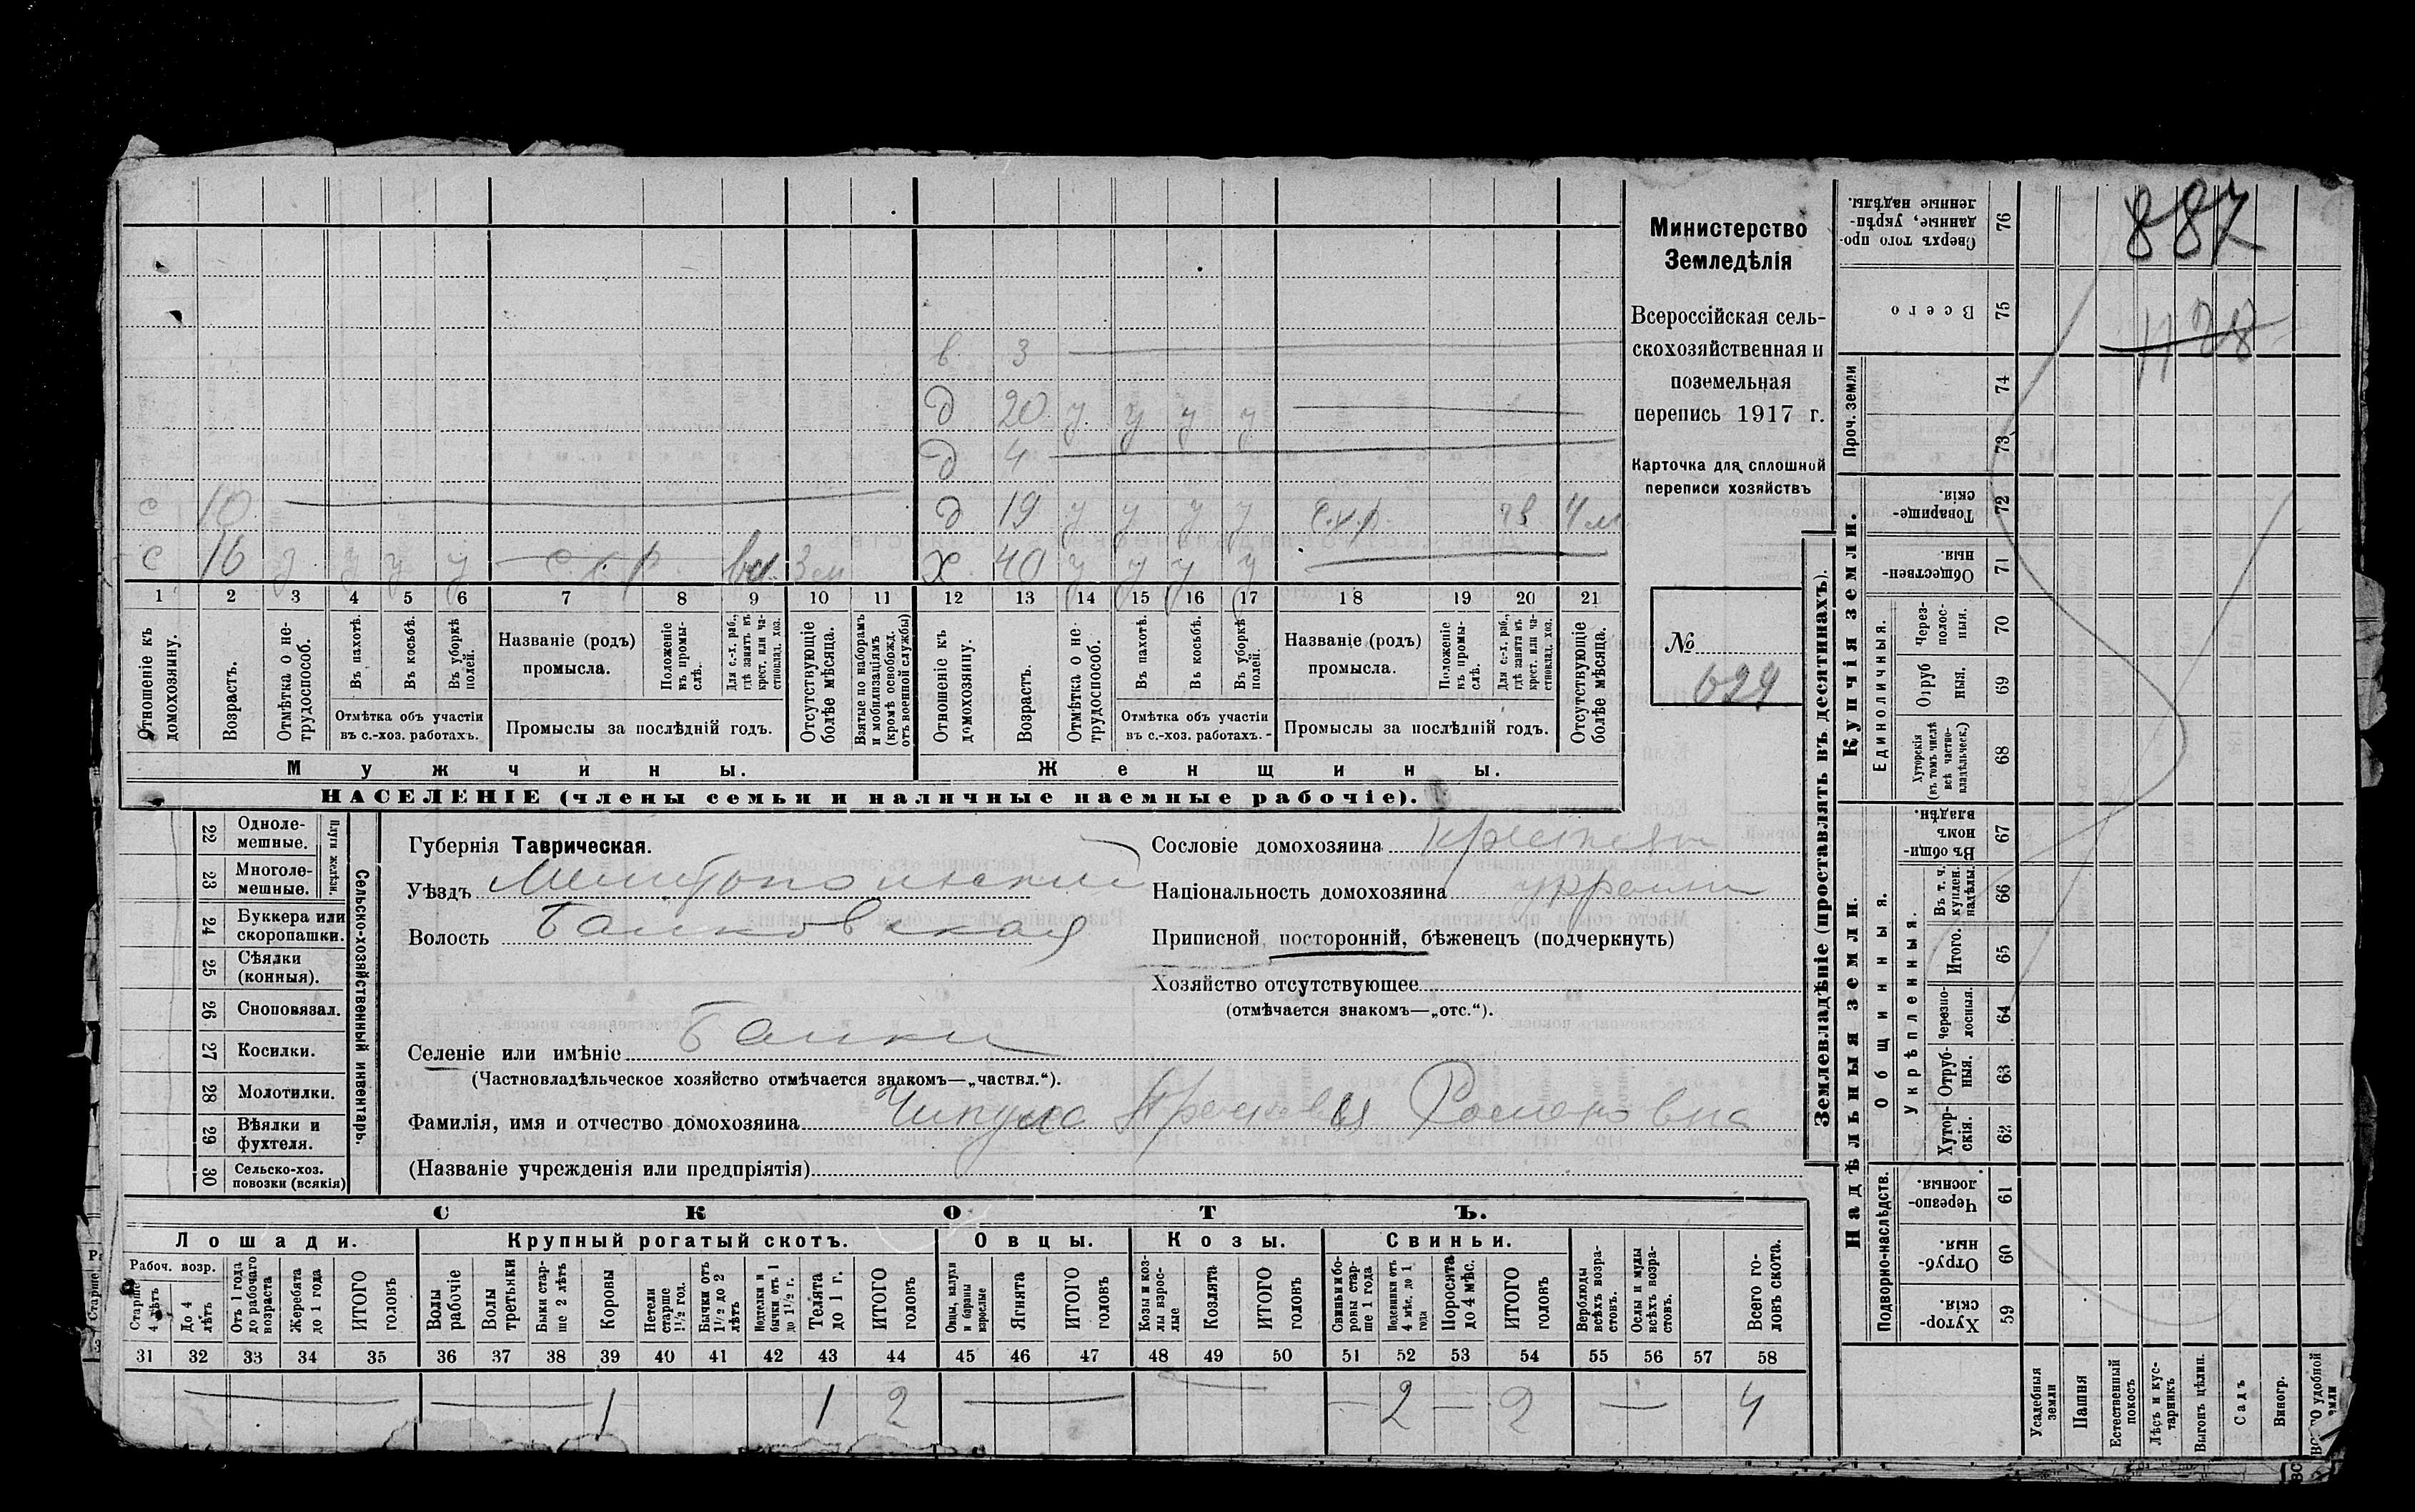 в 3
д 20 у у у у
д 4
с 10 д 19 у у у у с.х.р. чв 4 м
с 16 у у у у с.х.р. 3 м х 40 у у у у
1 2 3 4 5 6 7 8 9 10 11 12 13 14 15 16 17 18 19 20 21
Отношеніе къ домохозяину.
Возрастъ.
Отмѣтка о не-трудоспособ.
Въ пахотѣ.
Въ косьбѣ.
Въ уборкѣ полей.
Отмѣтка объ участіи
въ с.-хоз. работахъ.
Названіе (родъ)
промысла.
Положеніе въ промы-слѣ.
Для с.-х. раб., гдѣ занятъ въ крест. или ча-стновлад. хоз.
Промыслы за послѣдній годъ.
Отсутствующіе болѣе мѣсяца.
Взятые по наборамъ и мобилизаціямъ (кромѣ освобожд. отъ военной службы)
Отношеніе къ домохозяину.
Возрастъ.
Отмѣтка о не трудоспособ.
Въ пахотѣ.
Въ косьбѣ.
Въ уборкѣ полей.
Отмѣтка объ участіи
въ с.-хоз. работахъ.
Названіе (родъ)
промысла.
Положеніе въ промы-слѣ.
Для с.-х. раб., гдѣ занята въ крест. или ча-стновлад. хоз.
Промыслы за послѣдній годъ.
Отсутствующіе болѣе мѣсяца.
Мужчины. Женщины.
НАСЕЛЕНІЕ (члены семьи и наличные наемные рабочіе).
Министерство
Земледѣлія
Всероссійская сель-
скохозяйственная и
поземельная
перепись 1917 г.
Карточка для сплошной
переписи хозяйствъ
№
629
22 Одноле-мешные.
23 Многоле-мешные.
Плуги желѣзн.
24 Буккера или скоропашки.
25 Сѣялки (конныя).
26 Сноповязал.
27 Косилки.
28 Молотилки.
29 Вѣялки и фухтеля.
30 Сельско-хоз. повозки (всякія)
Сельско-хозяйственный инвентарь.
Губернія Таврическая.
Уѣздъ Мелитопольский
Волость Балковская
Сословіе домохозяина крестьян
Національность домохозяина украин
Приписной, посторонній, бѣженецъ (подчеркнуть)
Хозяйство отсутствующее
(отмѣчается знакомъ—„отс.“).
Селеніе или имѣніе Балки
(Частновладѣльческое хозяйство отмѣчается знакомъ—„частвл.“).
Фамилія, имя и отчество домохозяина Романовна
(Названіе учрежденія или предпріятія)
СКОТЪ.
Лошади. Крупный рогатый скотъ. Овцы. Козы. Свиньи.
Рабоч. возр.
Старше 4 лѣтъ
До 4 лѣтъ
Отъ 1 года до рабочаго возраста
Жеребята до 1 года
ИТОГО головъ
Волы рабочіе
Волы третьяки
Быки стар-ше 2 лѣтъ
Коровы
Нетели старше 1½ год.
Бычки отъ 1½ до 2 лѣтъ
Подтелки и бычки отъ 1 до 1½ г.
Телята до 1 г.
ИТОГО головъ
Овцы, валухи и бараны взрослые
Ягнята
ИТОГО головъ
Козы и коз-лы взрос-лые
Козлята
ИТОГО головъ
Свиньи и бо-ровы стар-ше 1 года
Подсвинки отъ 4 мѣс. до 1 года
Поросята до 4 мѣс.
ИТОГО головъ
Верблюды всѣхъ возра-стовъ.
Ослы и мулы всѣхъ возра-стовъ.
Всего го-ловъ скота.
31 32 33 34 35 36 37 38 39 40 41 42 43 44 45 46 47 48 49 50 51 52 53 54 55 56 57 58
1 1 2 2 2 4
887
1128
Землевладѣніе (проставлять въ десятинахъ).
Купчія земли.
Надѣльныя земли.
Сверхъ того про-данные, укрѣп-ленные надѣлы. 76
Всего 75
Проч. земли
74
73
Товарище-скія. 72
Обществен-ныя. 71
Единоличныя.
Через-полос-ныя. 70
Отруб ныя. 69
Хуторскія (въ томъ числѣ всѣ частно-владѣльческ.) 68
Общинныя.
Въ общи-номъ владѣн. 67
Укрѣпленныя.
Въ т. ч. куплен. надѣлы. 66
Итого. 65
Черезпо-лосныя. 64
Отруб-ныя. 63
Хутор-скія. 62
Подворно-наслѣдств.
Черезпо-лосныя. 61
Отруб-ныя. 60
Хутор-скія. 59
Усадебныя земли
Пашня
Естественный покосъ
Лѣсъ и кус-тарникъ
Выгонъ цѣлин.
Садъ
Виногр.
удобной